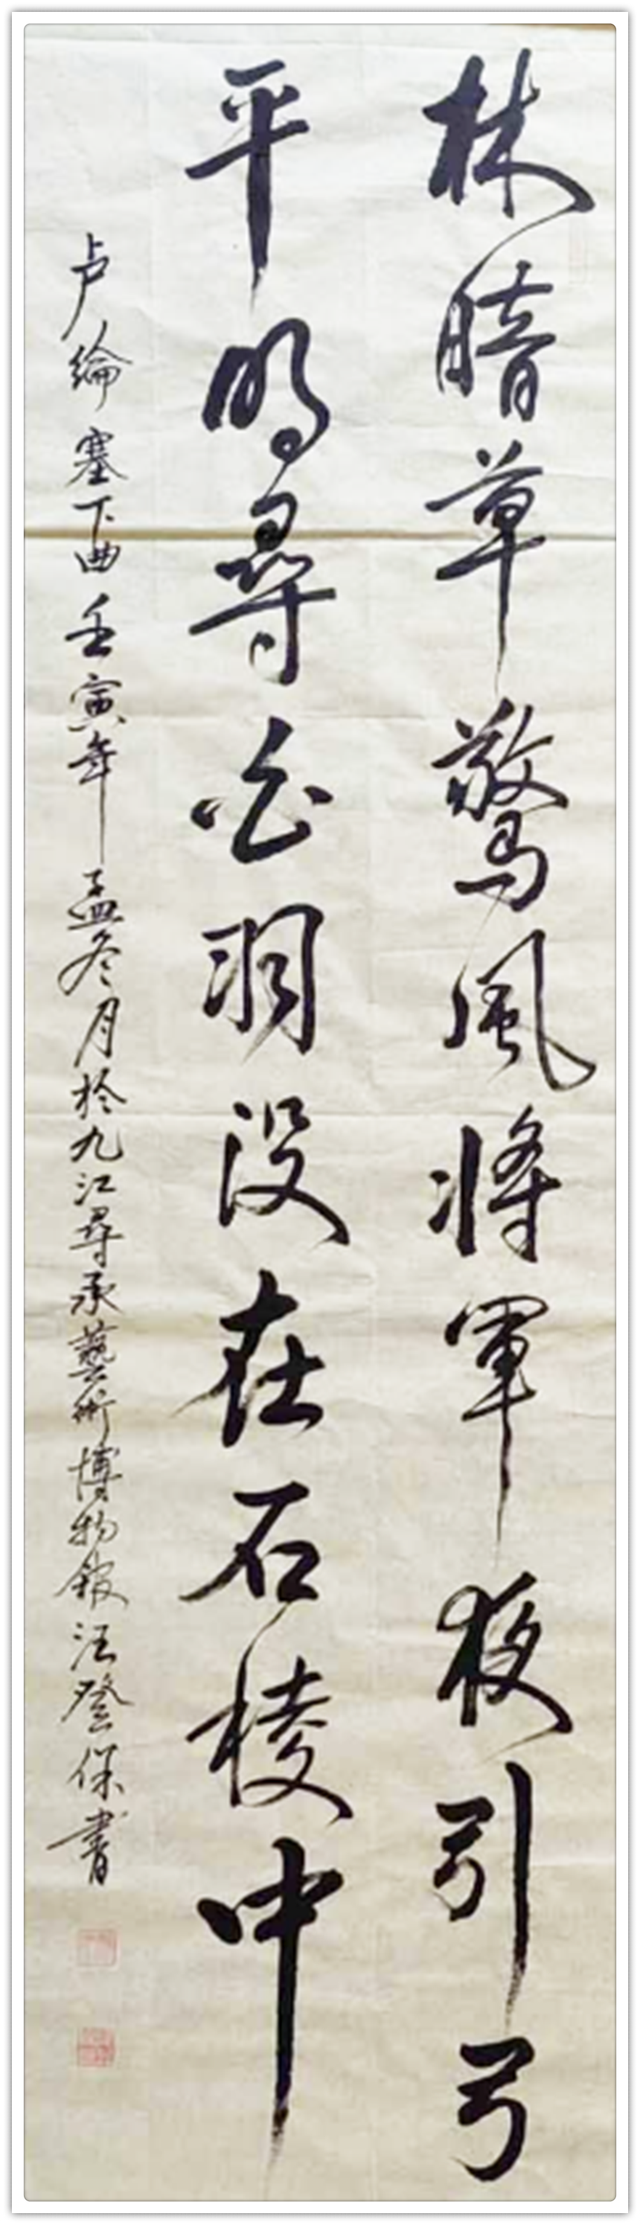 林暗草驚風将軍夜引弓
平明尋白羽没在石棱中
卢綸塞下曲壬寅年孟冬月於九江尋承藝術博物館汪登保書